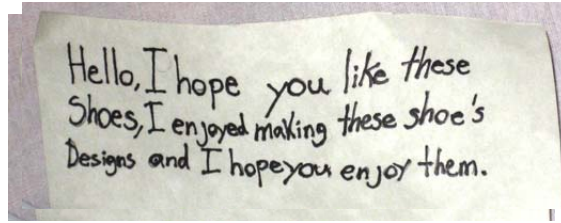 Hello, I hope you like these
Shoes, I enjoyed making these shoe's
Designs and I hope you enjoy them.